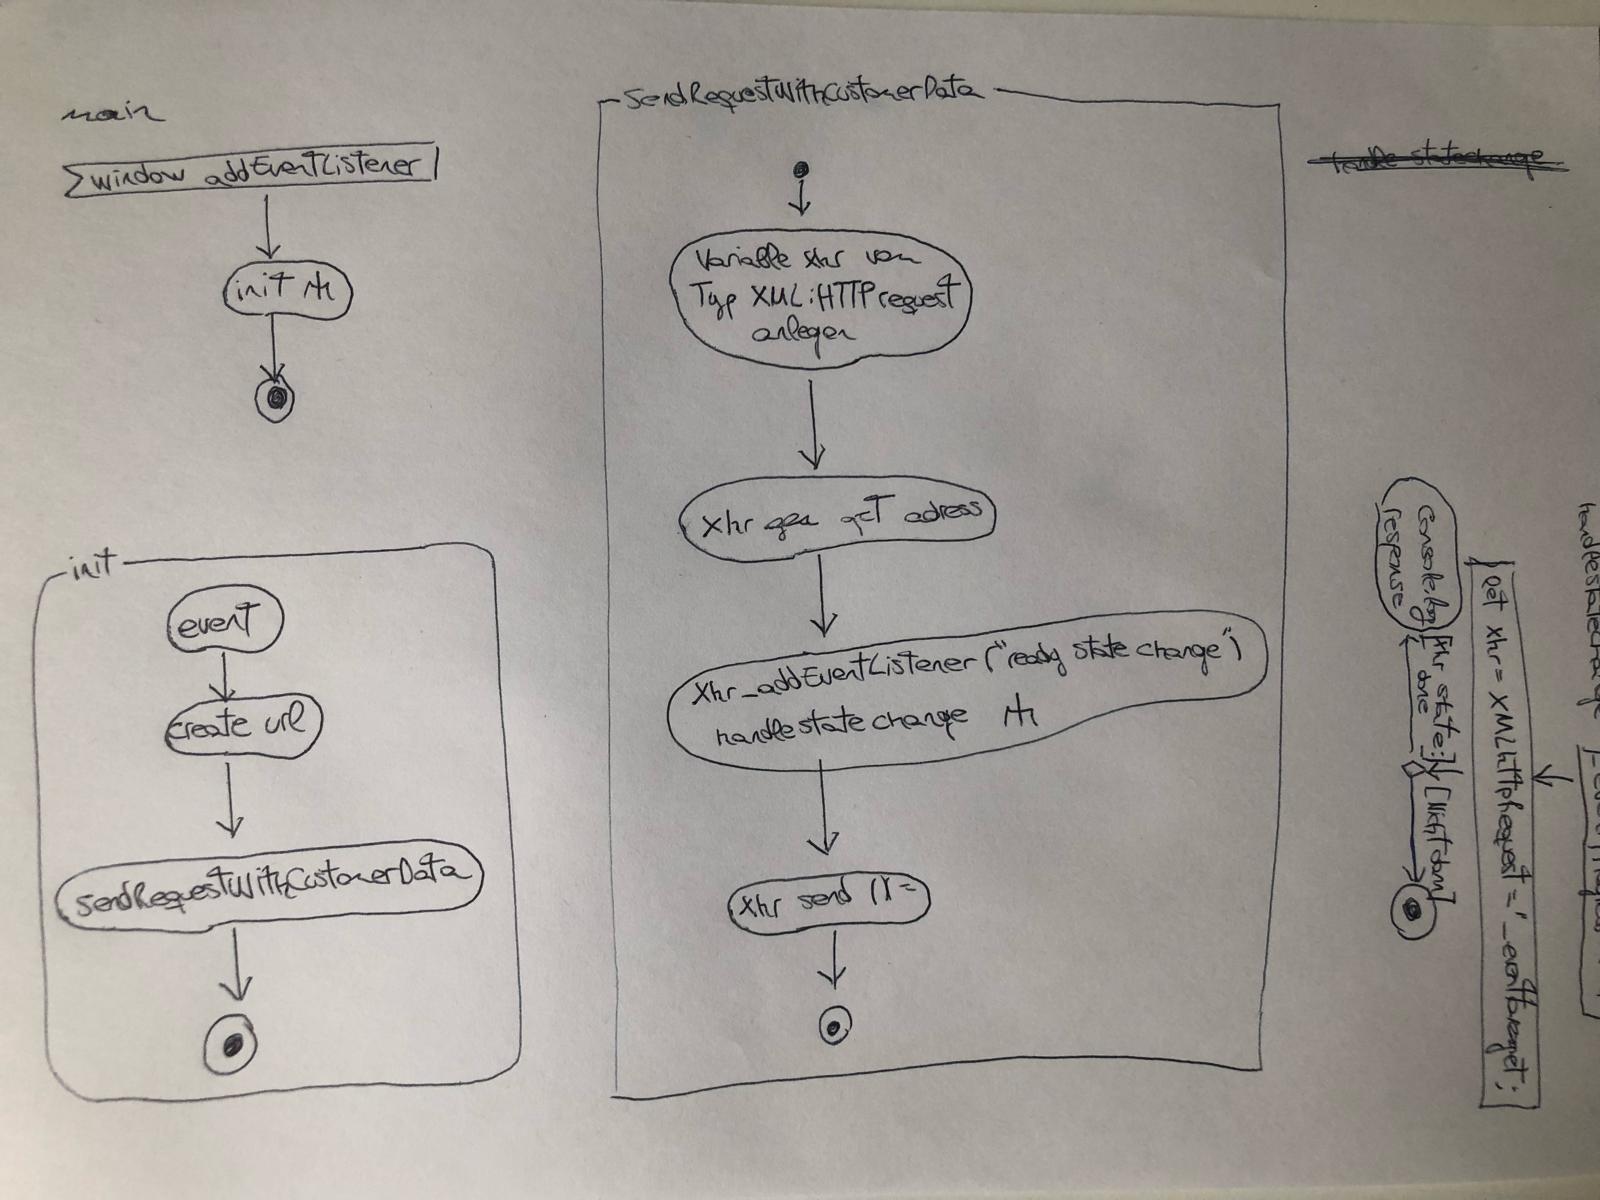 main
window addEventListener
init
init
event
create url
sendRequestWithCustomerData
SendRequestWithCustomerData
Variable xhr von
Typ XML:HTTPrequest
anlegen
xhr get adress
xhr_addEventListener ("ready state change")
handlestate change
xhr send
handle statechange
handlestatechange
let xhr = XMLHttpRequest = '_event
Console.log
response
[xhr state:]
done
[Nicht done]